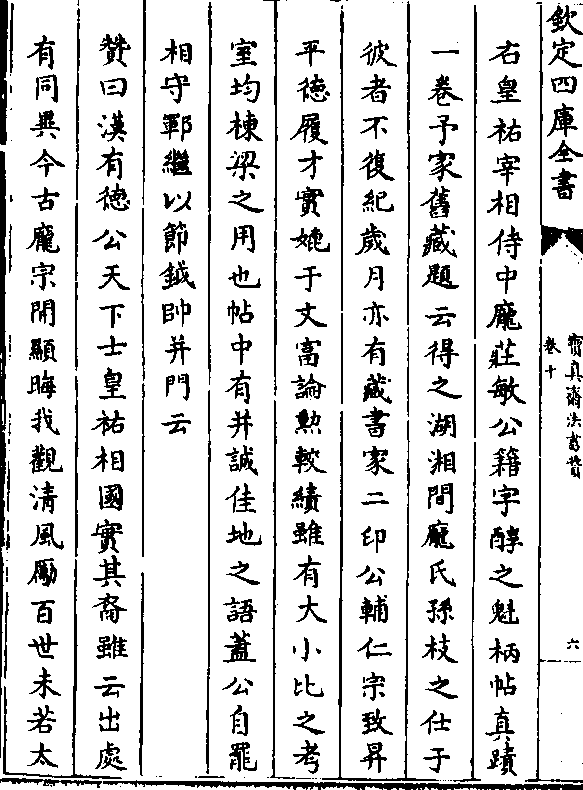 欽定四庫全書
寶真齋法書贊
卷十
六
右皇祐宰相侍中龐莊敏公籍字醇之魁柄帖真蹟
一卷予家舊藏題云得之湖湘間龐氏孫枝之仕于
彼者不復紀歲月亦有藏書家二印公輔仁宗致昇
平德履才實媲于文富論勲較績雖有大小比之考
室均棟梁之用也帖中有并誠佳地之語蓋公自罷
相守鄆繼以節鉞帥并門云
贊曰漢有德公天下士皇祐相國實其裔雖云出處
有同異今古龐宗開顯晦我觀清風勵百世未若太